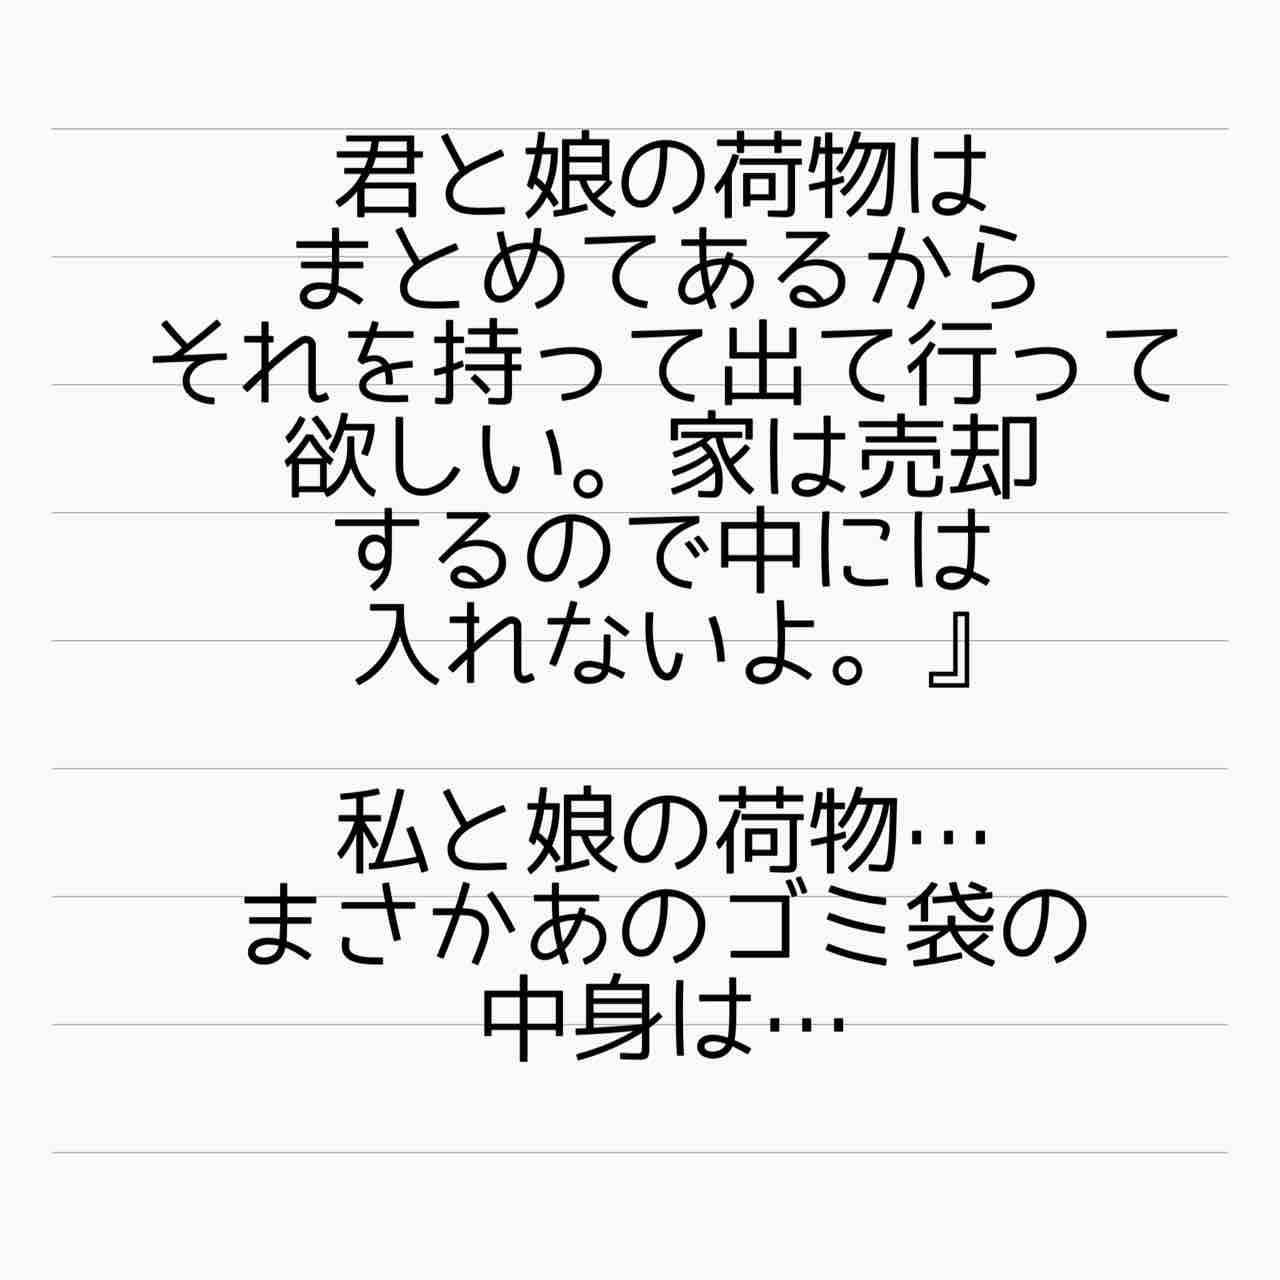 君と娘の荷物は
まとめてあるから
それを持って出て行って
欲しい。家は売却
するので中には
入れないよ。』
私と娘の荷物…
まさかあのゴミ袋の
中身は…